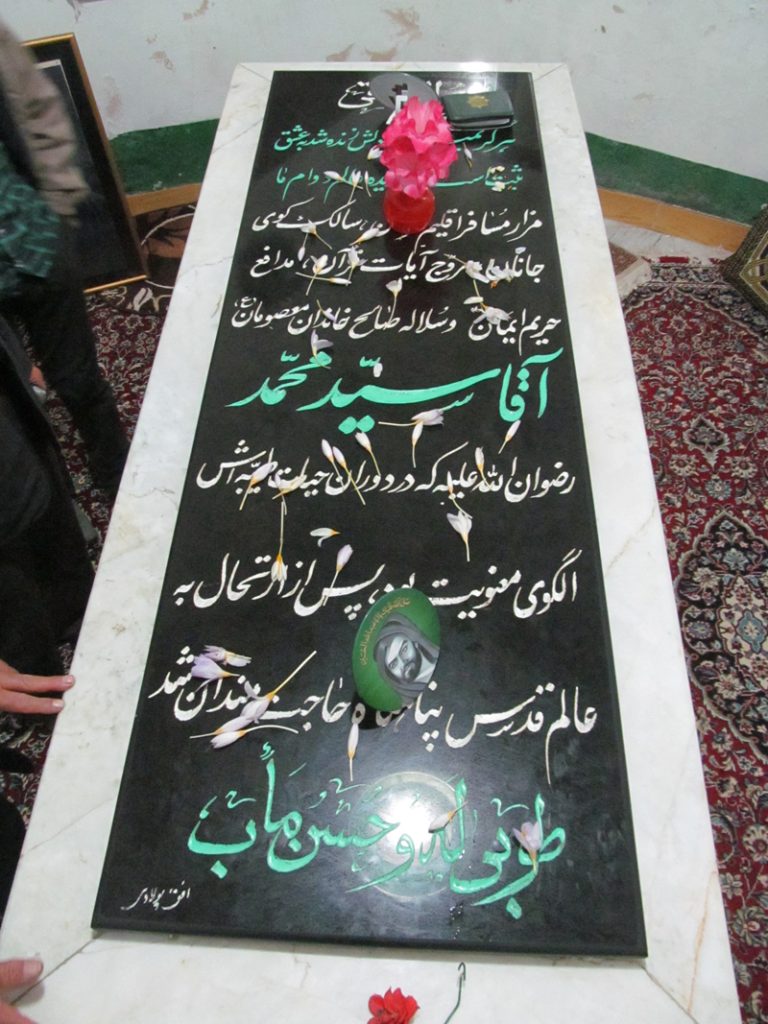 هرگز نمی دلش زنده شد به عشق
ثبت است دوام ما
مزار مسافر اقلیم سالک کوی
جانان مروج آیات قرآن، مدافع
حریم ایمان وسلاله صالح خاندان معصومان(ع)
آقا سیّد محمّد
رضوان الله علیه که در دوران حیات طیّبه اش
الگوی معنویت بود، پس از ارتحال به
عالم قدس پناهگاه حاجتمندان شد
طوبی له و حُسن مَأب
افق پولادی